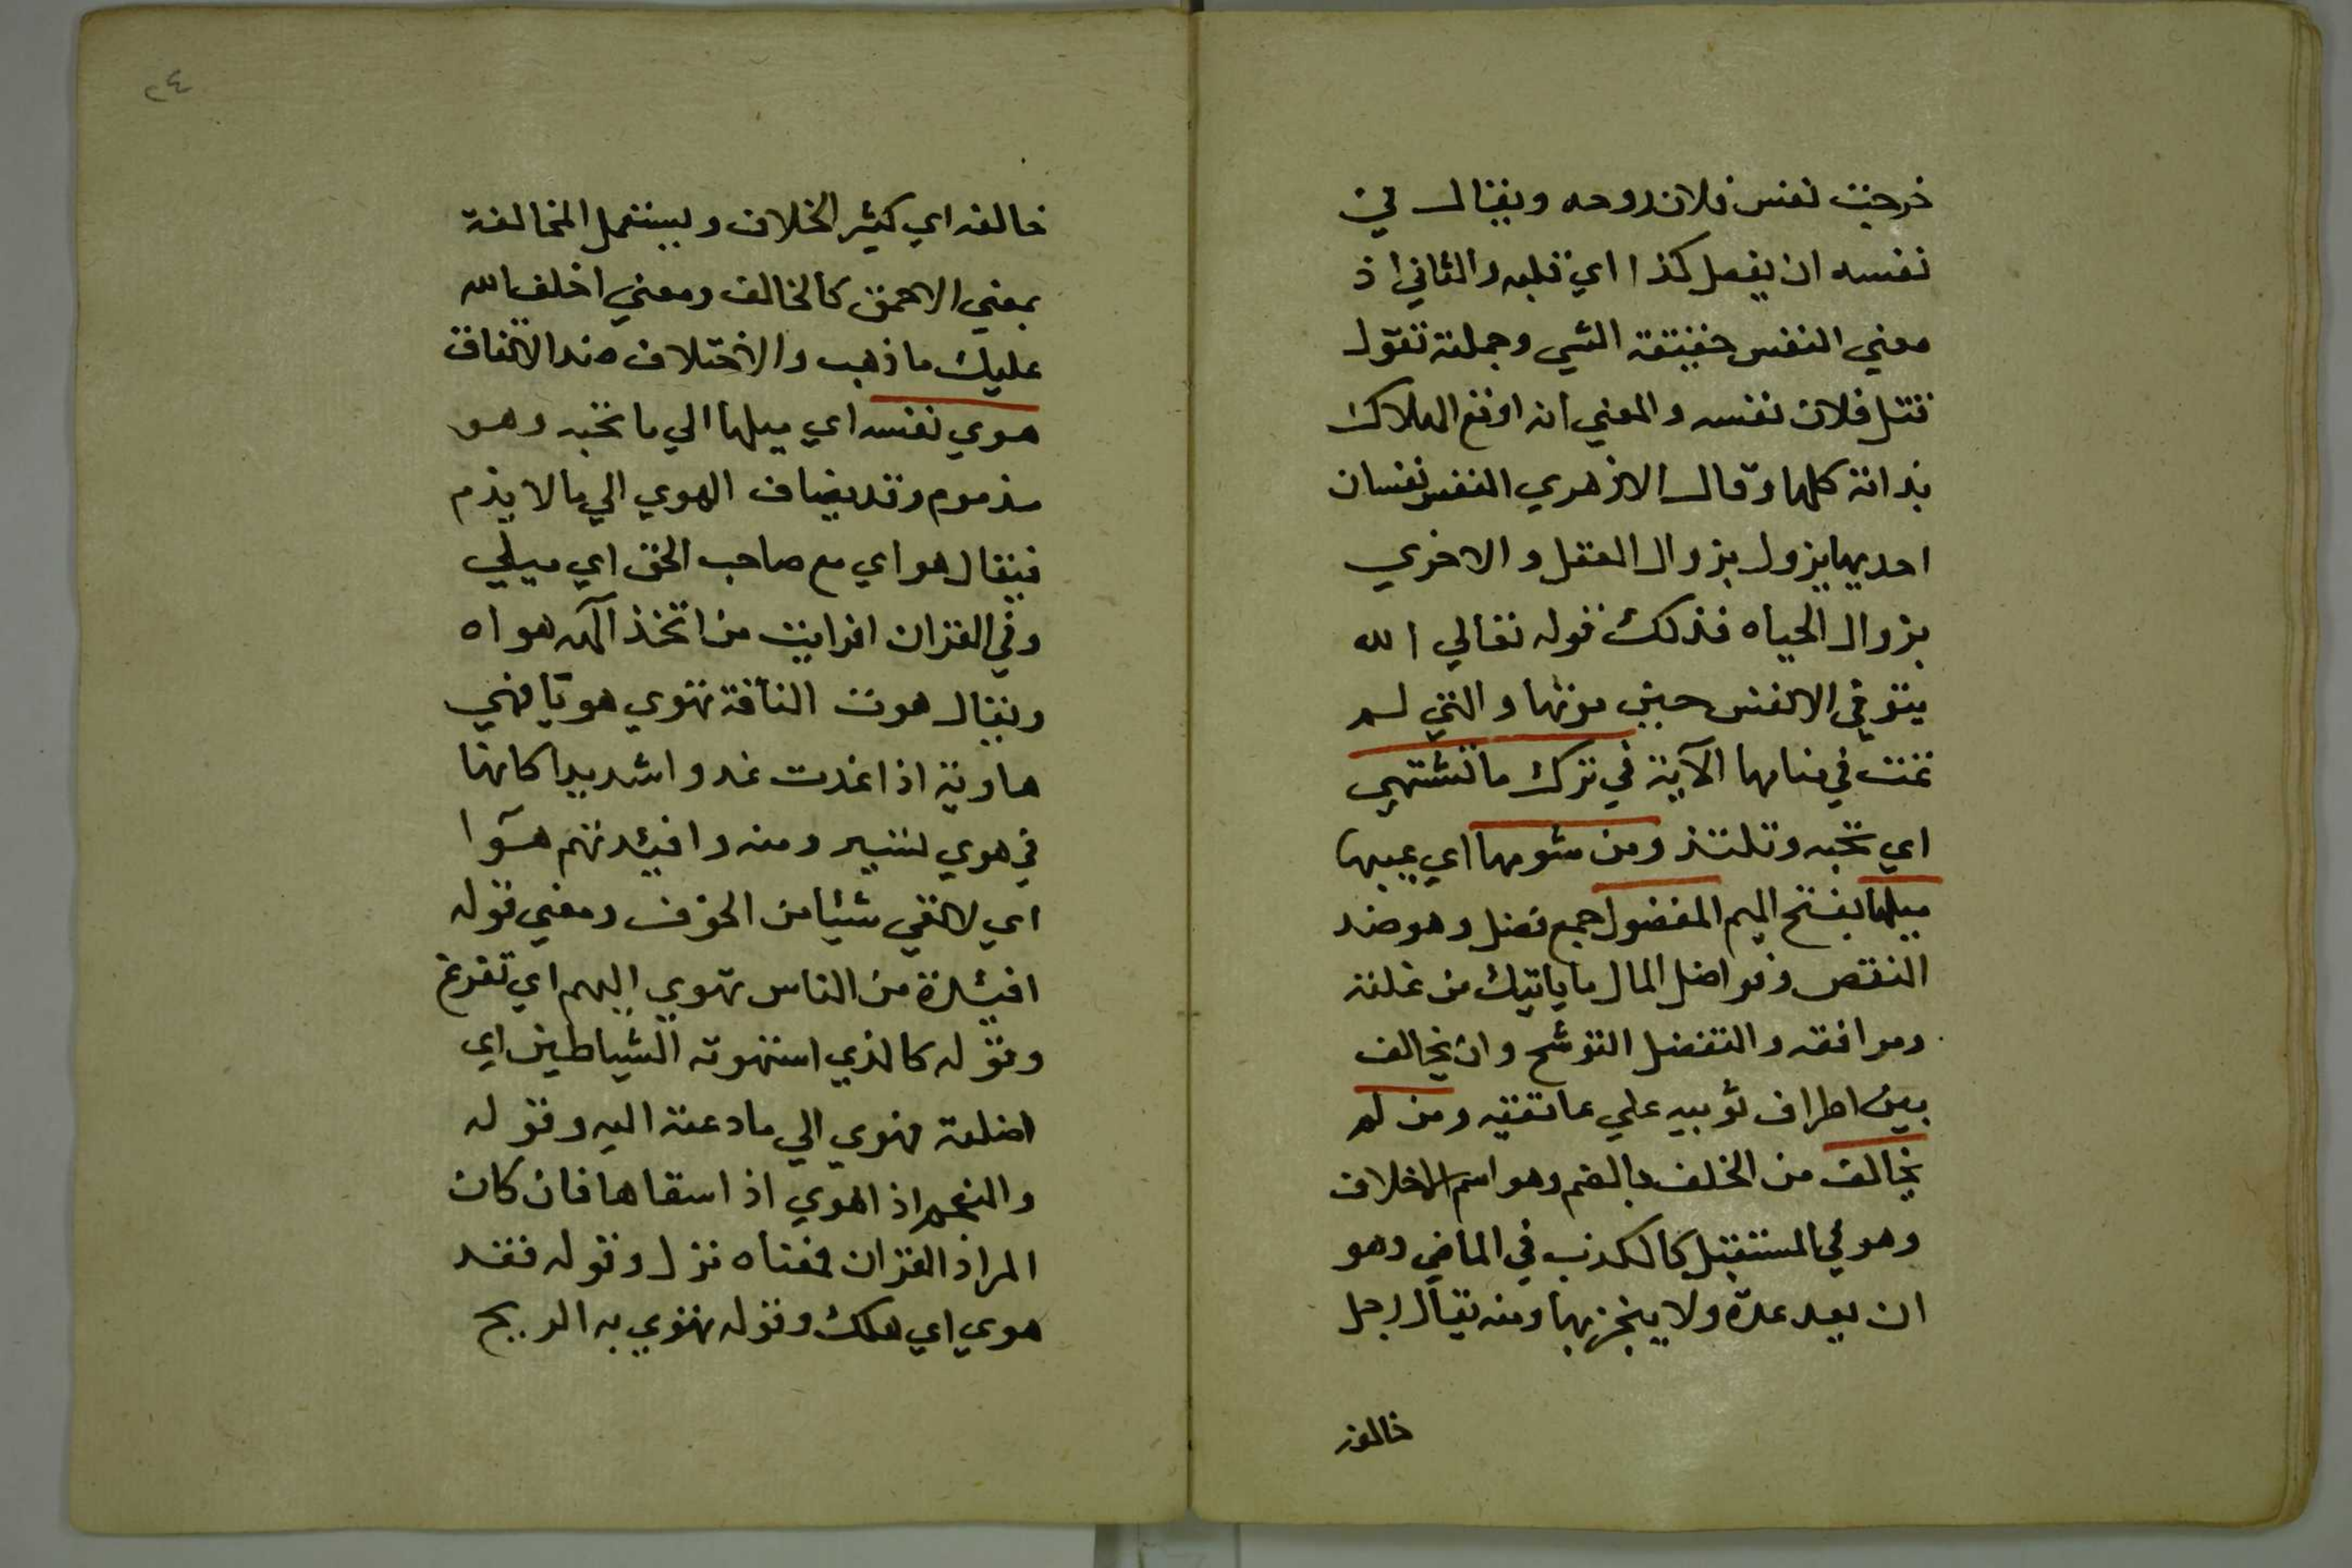 خرجت نفس فلان روحه ويقال في
نفسه ان يفعل كذا اي قلبه والثاني اذ
معني النفس حقيقة الشي وجملته تقول
قتل فلان نفسه والمعني انه اوقع الهلاك
بذاته كلها وقال الازهري النفس نفسان
احديهما يزول بزوال العقل والاخري
بزوال الحياه فذلك قوله تعالي الله
يتوفي الانفس حين موتها والتي لم
تمت في منامها الآية في ترك ما تشتهي
اي تحبه وتلتذ ومن شومها اي عيبها
ميلها بفتح الميم المفضول جمع فضل وهو ضد
النقص وفواضل المال ما ياتيك من غلته
ومرافقه والتفضل التوشح وان يخالف
بين اطراف ثوبيه علي عاتقيه ومن لم
يخالف من الخلف بالضم وهو اسم الاخلاف
وهو في المستقبل كالكذب في الماضي وهو
ان يعد عدة ولا ينجزبها ومنه يقال رجل
خالفه
٢٤
خالفه اي كثير الخلاف ويستعمل المخالفة
بمعني الاحمق كالخالف ومعني اخلف الله
عليك ما ذهب والاختلاف ضد الاتفاق
هوي نفسه اي ميلها الي ما تحبه وهو
مذموم وقد يضاف الهوي الي ما لا يذم
فيقال هواي مع صاحب الحق اي ميلي
وفي القران افرايت من اتخذ آلهه هواه
ويقال هوت الناقة تهوي هويا فهي
هاوية اذا غدت غدوا شديدا كانها
في هوي لسير ومنه وافيدتهم هوآ
اي لا تقي شئيا من الخوف ومعني قوله
افيئدة من الناس تهوي اليهم اي تفزع
وقوله كالذي استهوته الشياطين اي
اضلته فهوي الي ما دعته اليه وقوله
والنجم اذ اهوي اذ اسقاها فان كان
المراد القران فمعناه نزل وقوله فقد
هوي اي هلك وقوله تهوي به الريح